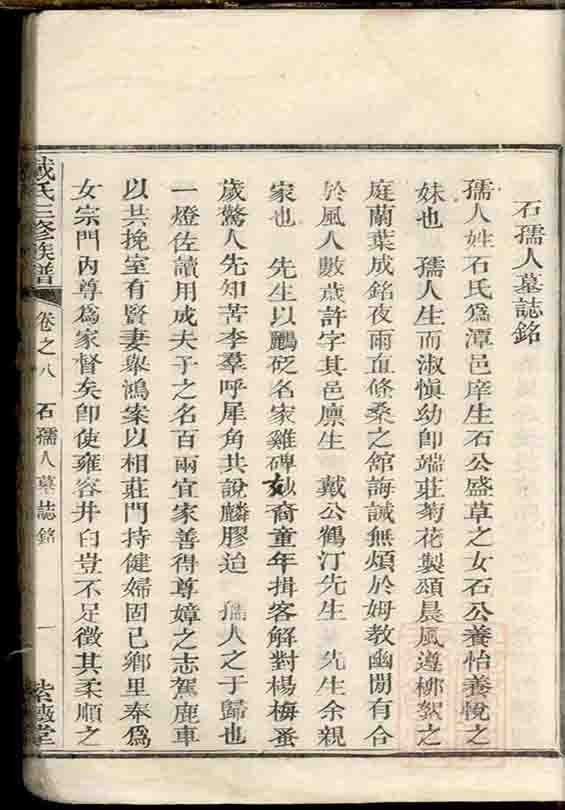 石孺人墓誌銘
孺人姓石氏爲潭邑庠生石公盛草之女石公養怡養悅之
妹也　孺人生而淑愼幼即端莊菊花製頌晨風遵柳絮之
庭蘭葉成銘夜雨直條桑之舘誨諴無煩於姆教幽閒有合
於風人數歲許字其邑廪生　戴公鶴汀先生　先生余親
家也　先生以鸝砭名家雞碑妙裔童年揖客解對楊梅蚤
歲驚人先知苦李羣呼犀角共說麟膠迨　孺人之于歸也
一燈佐讀用成夫子之名百兩宜家善得尊嫜之志駕鹿車
以共挽室有賢妻舉鴻案以相莊門持健婦固已鄉里奉爲
女宗門內尊爲家督矣即使雍容井臼豈不足徵其柔順之
戴氏三修族譜
卷之八
石孺人墓誌銘
一
紫薇堂